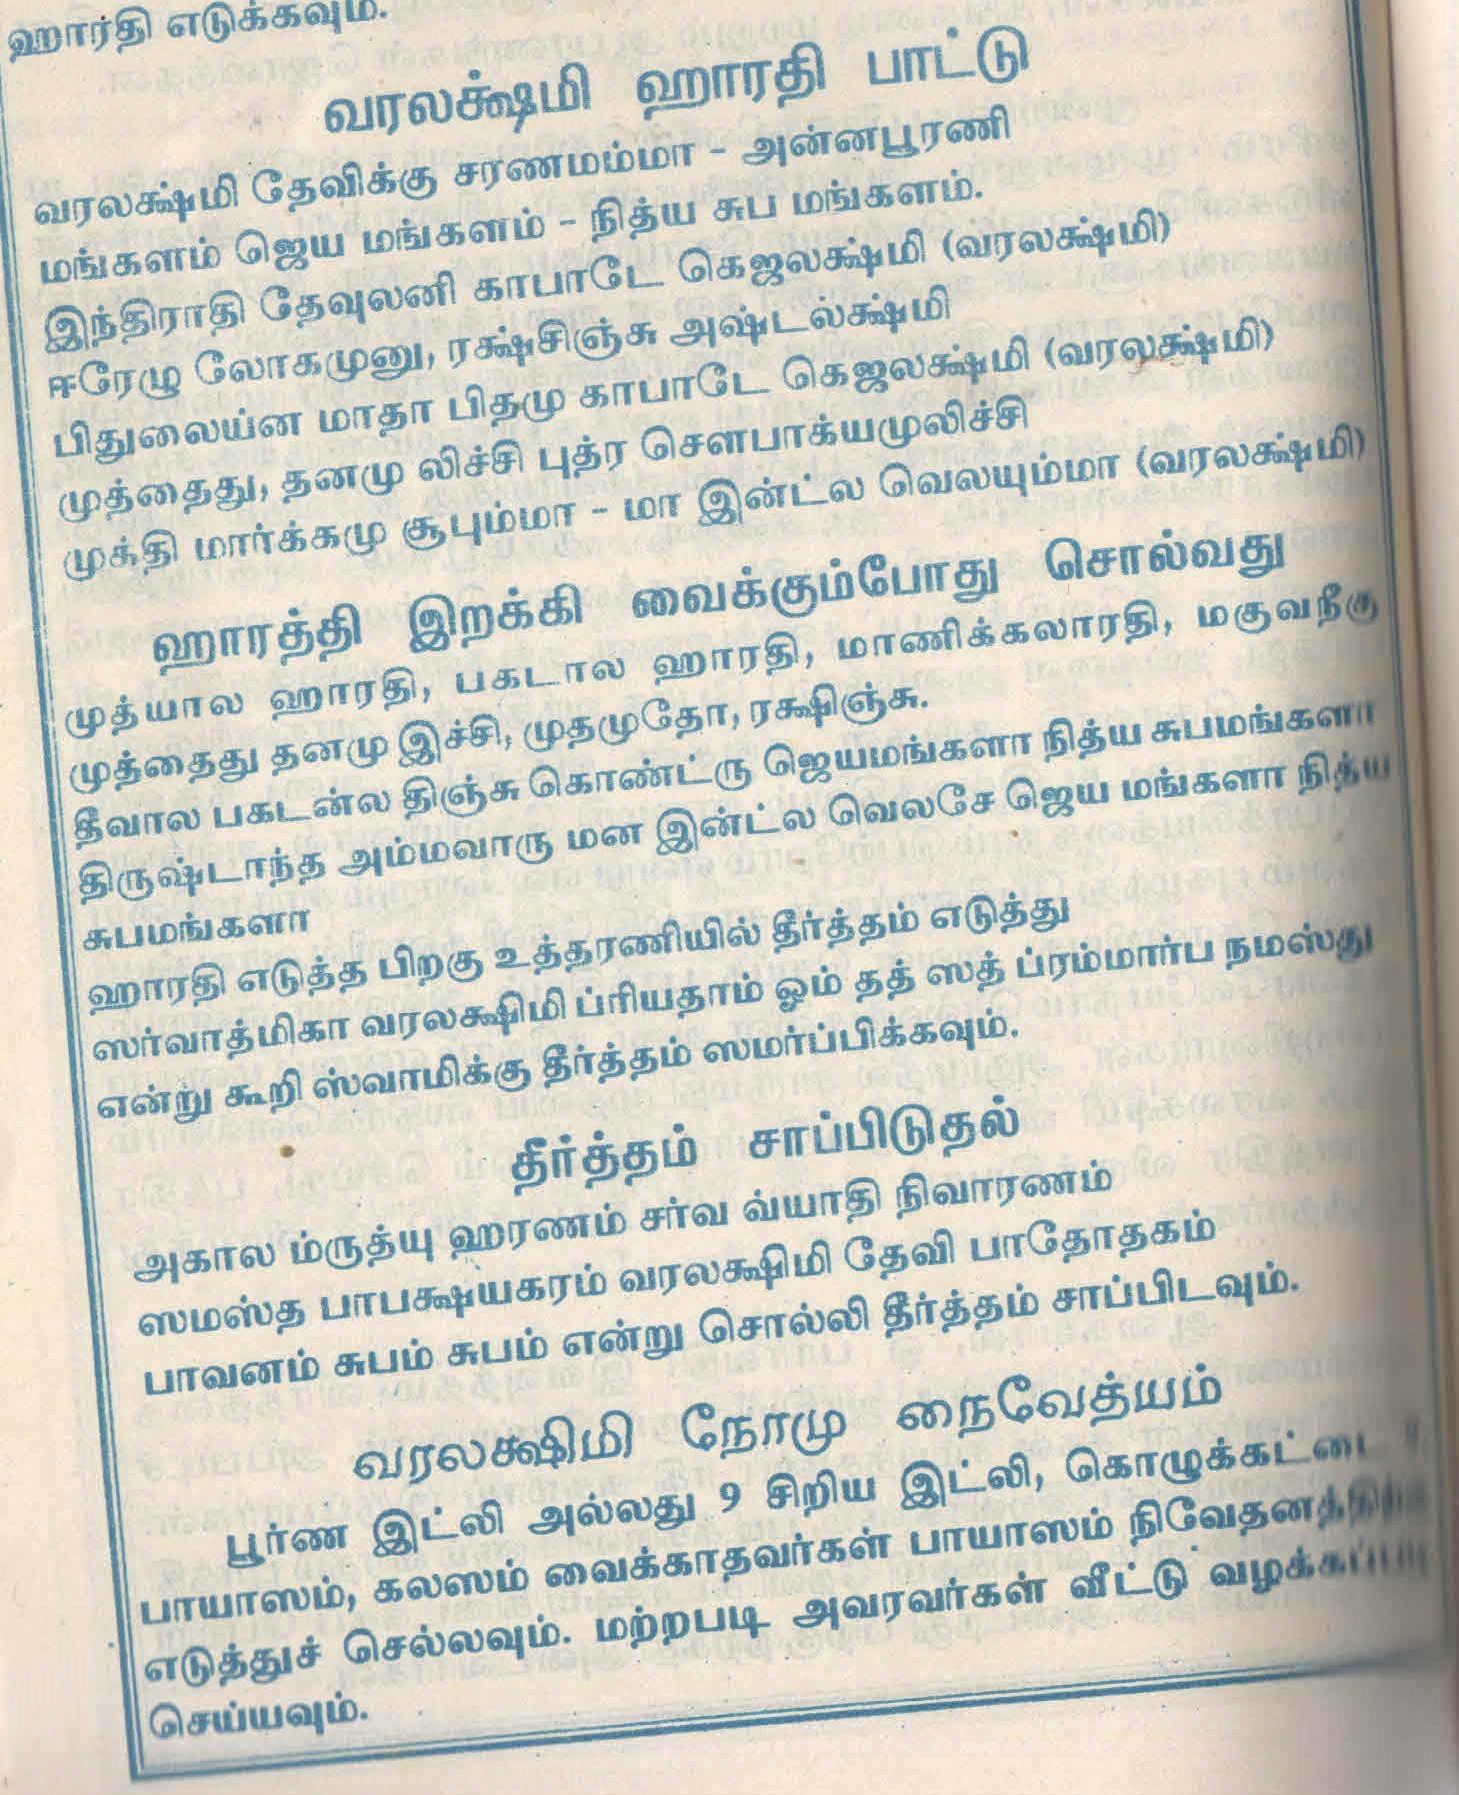 ஹார்தி எடுக்கவும்.
வரலக்ஷ்மி ஹாரதி பாட்டு
வரலக்ஷ்மி தேவிக்கு சரணமம்மா – அன்னபூரணி
மங்களம் ஜெய மங்களம் – நித்ய சுப மங்களம்.
இந்திராதி தேவுலனி காபாடே கெஜலக்ஷ்மி (வரலக்ஷ்மி)
ஈரேழு லோகமுனு, ரக்ஷ்சிஞ்சு அஷ்டல்க்ஷ்மி
பிதுலைய்ன மாதா பிதமு காபாடே கெஜலக்ஷ்மி (வரலக்ஷ்மி)
முத்தைது, தனமு லிச்சி புத்ர சௌபாக்யமுலிச்சி
முக்தி மார்க்கமு சூபும்மா – மா இன்ட்ல வெலயும்மா (வரலக்ஷ்மி)
ஹாரத்தி இறக்கி வைக்கும்போது சொல்வது
முத்யால ஹாரதி, பகடால ஹாரதி, மாணிக்கலாரதி, மகுவநீகு
முத்தைது தனமு இச்சி, முதமுதோ, ரக்ஷிஞ்சு.
தீவால பகடன்ல திஞ்சு கொண்ட்ரு ஜெயமங்களா நித்ய சுபமங்களா
திருஷ்டாந்த அம்மவாரு மன இன்ட்ல வெலசே ஜெய மங்களா நித்ய
சுபமங்களா
ஹாரதி எடுத்த பிறகு உத்தரணியில் தீர்த்தம் எடுத்து
ஸர்வாத்மிகா வரலக்ஷிமி ப்ரியதாம் ஓம் தத் ஸத் ப்ரம்மார்ப நமஸ்து
என்று கூறி ஸ்வாமிக்கு தீர்த்தம் ஸமர்ப்பிக்கவும்.
தீர்த்தம் சாப்பிடுதல்
அகால ம்ருத்யு ஹரணம் சர்வ வ்யாதி நிவாரணம்
ஸமஸ்த பாபக்ஷயகரம் வரலக்ஷிமி தேவி பாதோதகம்
பாவனம் சுபம் சுபம் என்று சொல்லி தீர்த்தம் சாப்பிடவும்.
வரலக்ஷிமி நோமு நைவேத்யம்
பூர்ண இட்லி அல்லது 9 சிறிய இட்லி, கொழுக்கட்டை
பாயாஸம், கலஸம் வைக்காதவர்கள் பாயாஸம்
எடுத்துச் செல்லவும். மற்றபடி அவரவர்கள் வீட்டு
செய்யவும்.